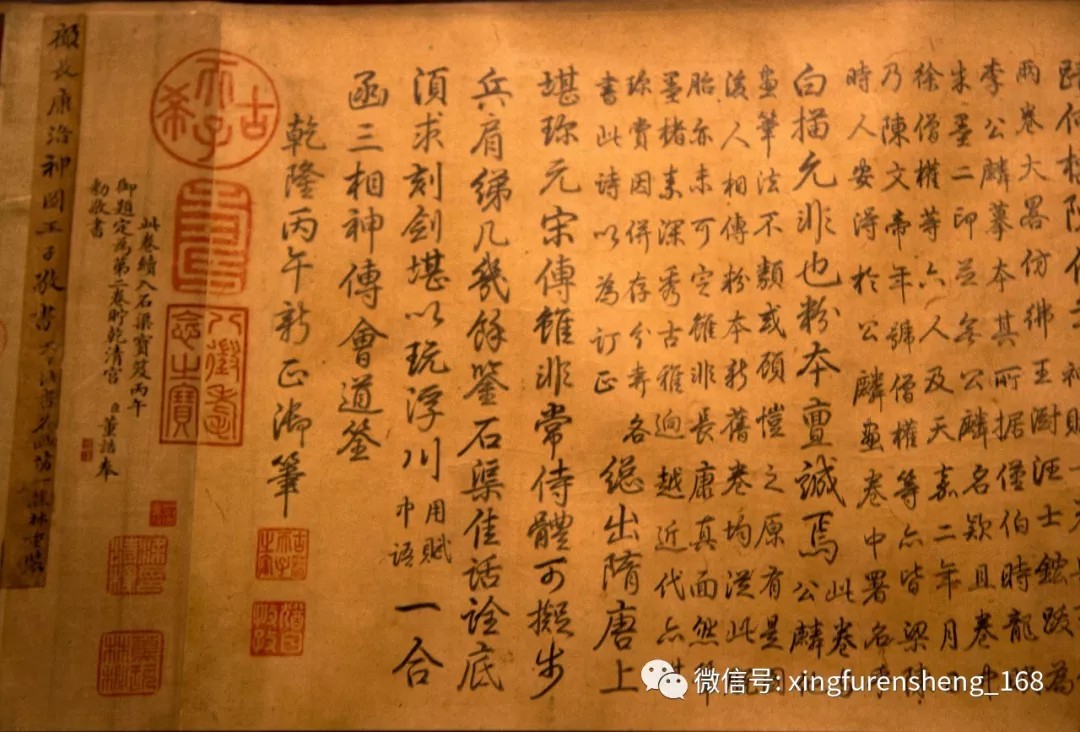 兩卷大畧仿彿王澍汪士鋐跋
李公麟摹本其所據僅伯時龍眠
朱墨二印並無公麟名欵且卷中
徐僧權等六人及天嘉二年月
乃陳文帝年號僧權等亦皆梁陳
時人安得於公麟畫卷中署名
白描允非也粉本亶誠焉
此卷
公麟
畫筆法不類或顧愷之原有是圖
後人相傳粉本新舊卷均從此
胎亦未可定雖非長康真面然筆
墨楮素深秀古雅迥越近代亦堪
珍賞因併存分弆各
書此詩以為訂正
總出隋唐上
堪珍元宋傳雖非常侍體可擬步
兵肩綈几幾餘鑒石渠佳話詮底
須求刻劍堪以玩浮川
用賦
中語
一合
函三相神傳會道筌
乾隆丙午新正御筆
古希天子
壽
八徵耄念之寶
猶日孜孜
此卷續入石渠寶笈丙午
御題定為第二卷貯乾清宮臣董誥奉
勅敬書
顧長康洛神圖王子敬書
微信号: xingfurensheng_168